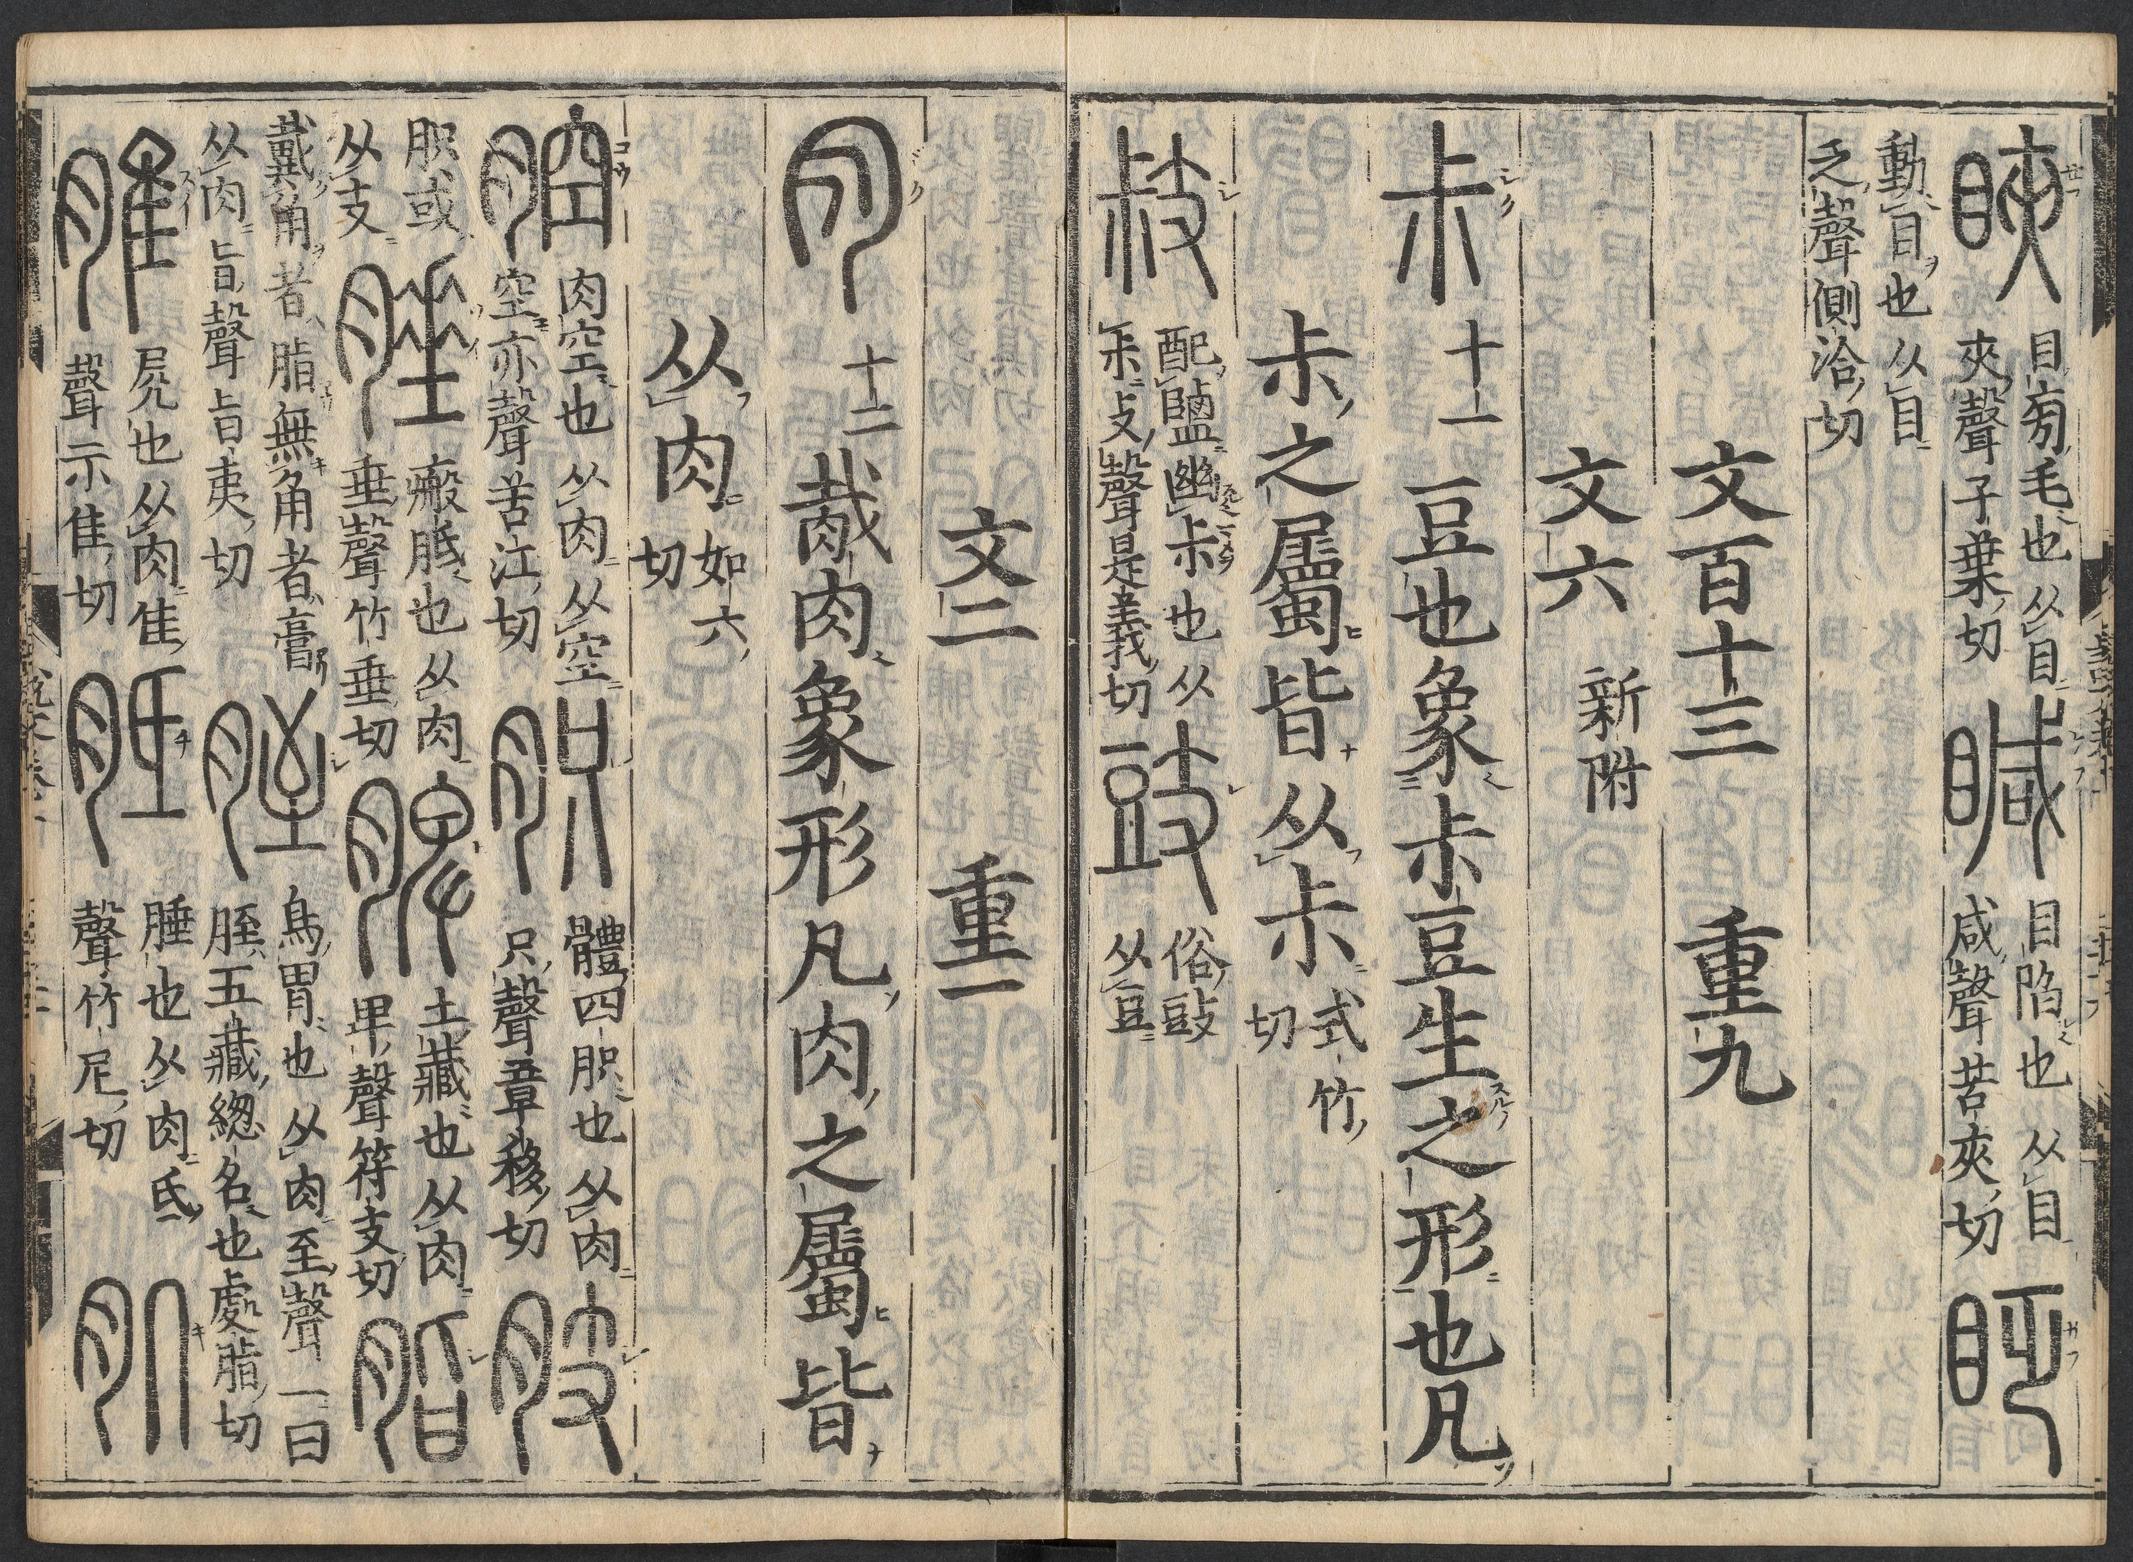 䀹 目㫄毛也从目夾聲子葉切 䁍 目陷也从目咸聲苦夾切 眨
動目也从目乏聲側洽切
文百十三 重九
文六 新附
尗 十一 豆也象尗豆生之形也凡
尗之屬皆从尗 式竹切
𢻃 配鹽幽尗也从尗支聲是義切 豉 俗豉从豆
文二 重一
肉 十二 胾肉象形凡肉之屬皆
从肉 如六切
腔 肉空也从肉从空空亦聲苦江切 胑 體四胑也从肉只聲章移切 肢
胑或从支 腄 瘢胝也从肉垂聲竹垂切 脾 土藏也从肉卑聲符支切 脂
戴角者脂無角者膏从肉旨聲旨夷切 胵 鳥胃也从肉至聲一曰胵五藏緫名也處脂切
脽 尻也从肉隹聲示隹切 胝 腄也从肉氐聲竹尼切 肌